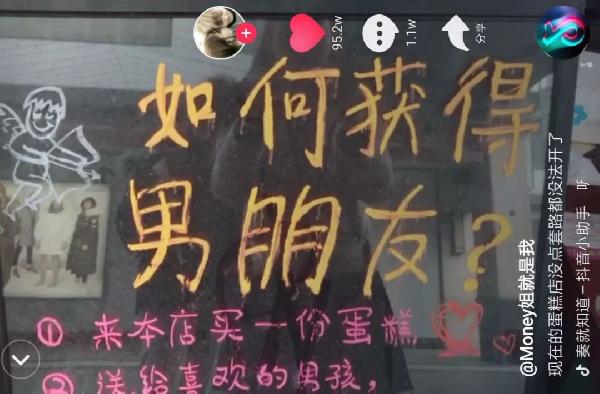 如何获得
男朋友?
① 来本店买一份蛋糕
② 送给喜欢的男孩,
95.2w
1.1w
分享
@Money姐就是我
现在的蛋糕店没点套路都没法开了
奏就知道-抖音小助手 咔